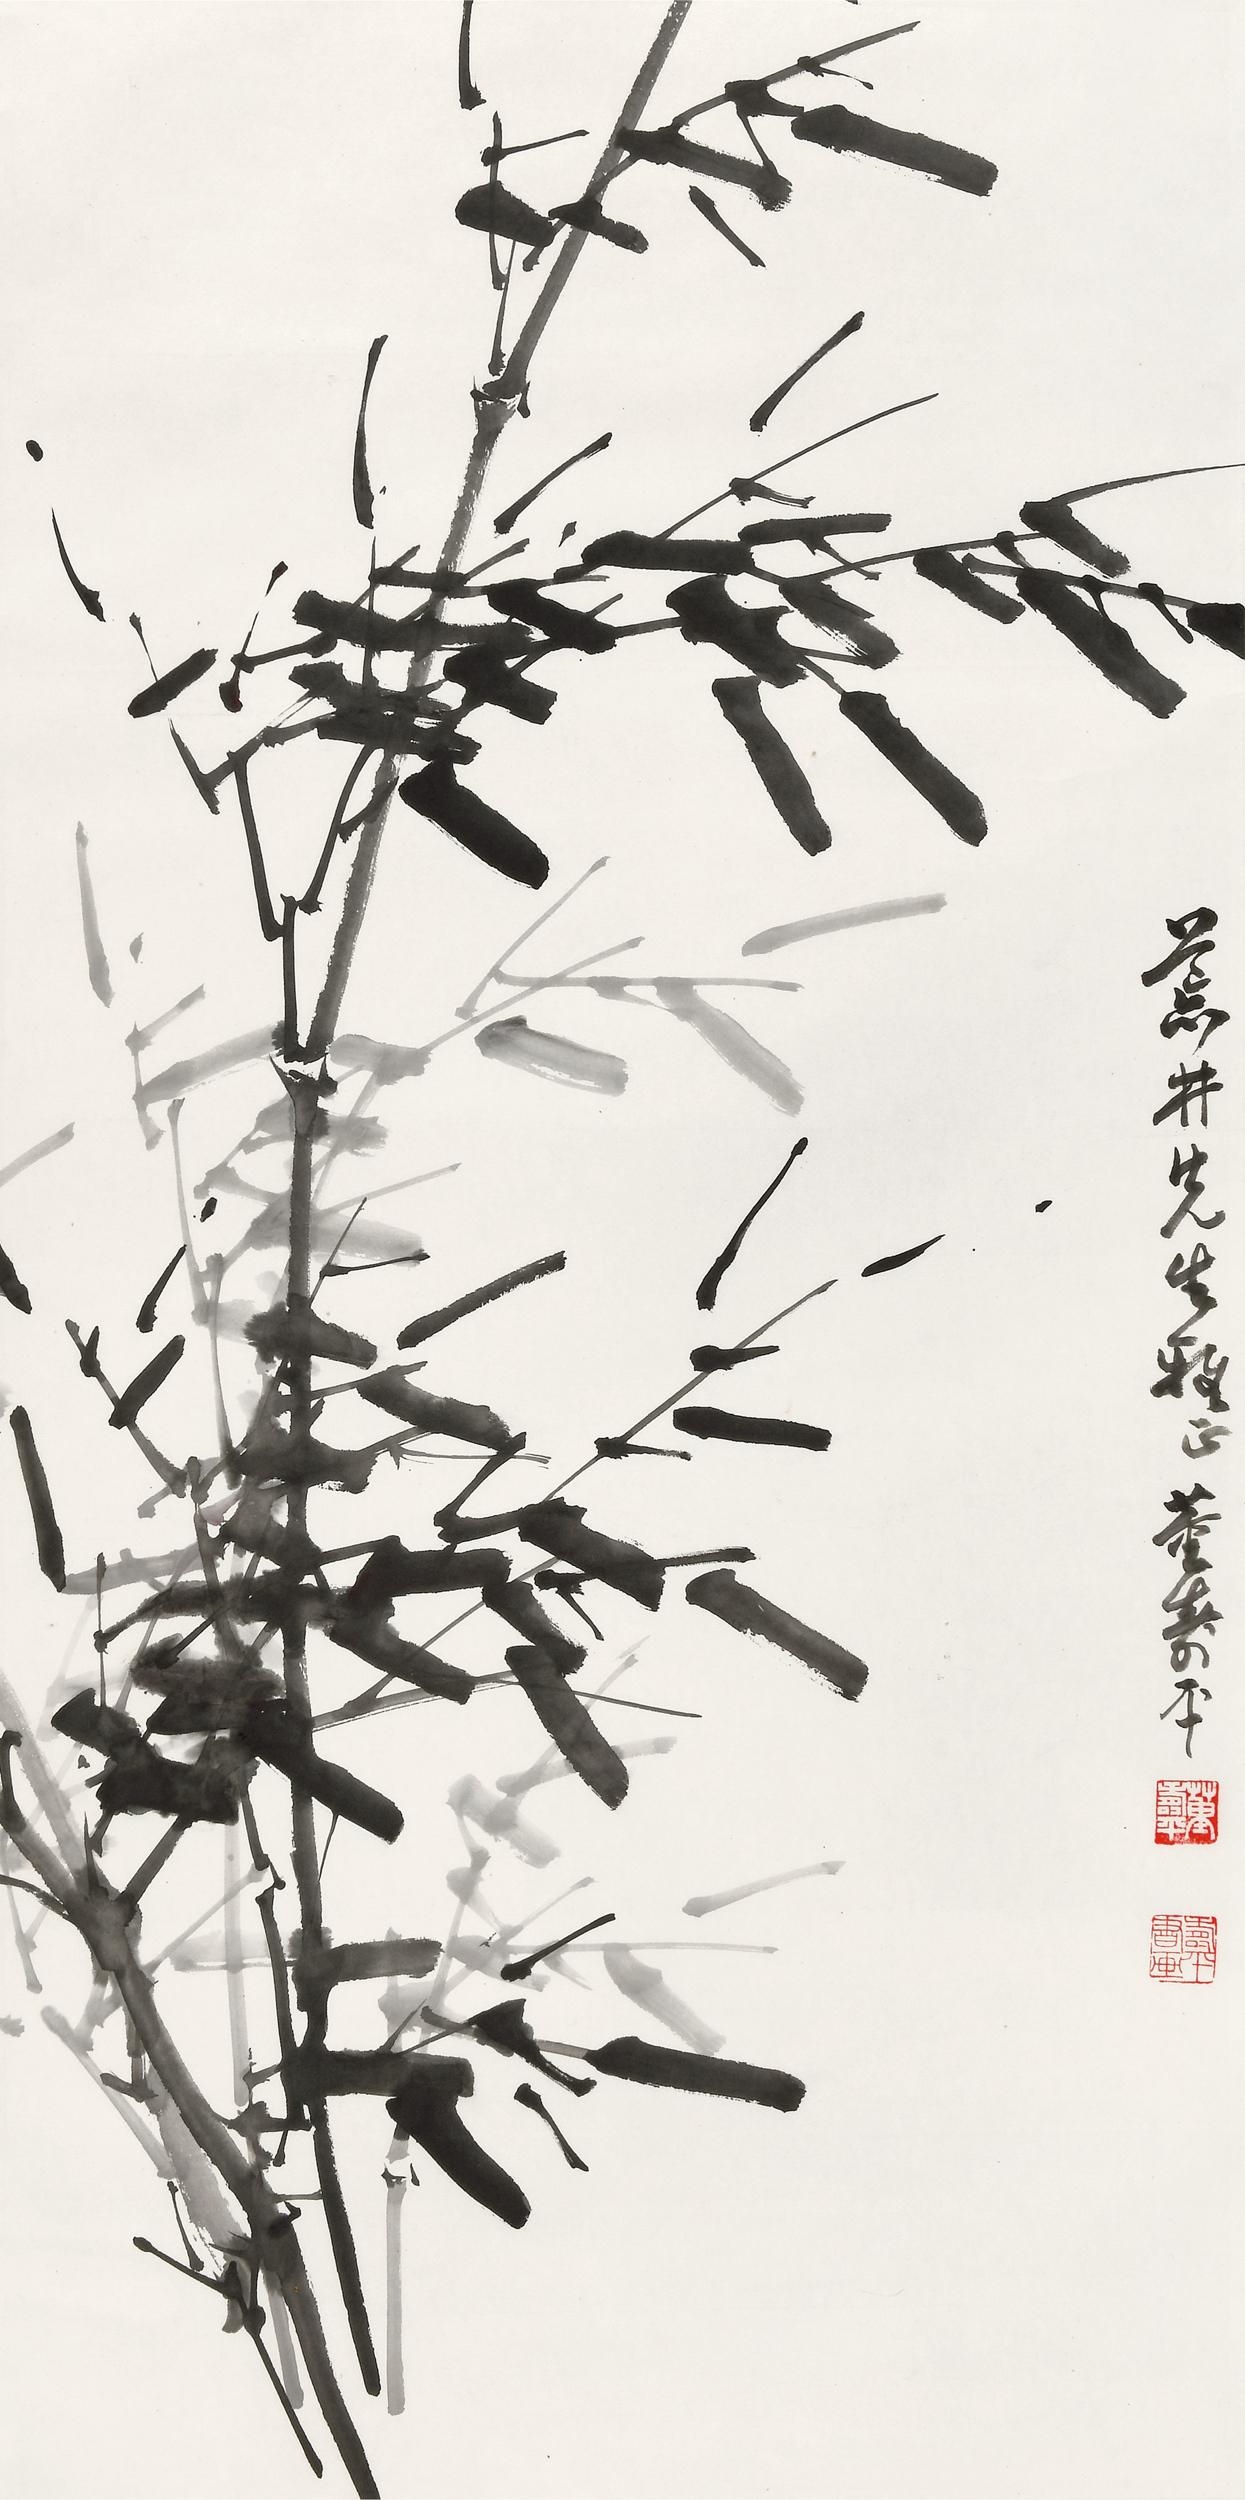 荒井先生雅正 董寿平
董壽平
壽平書画